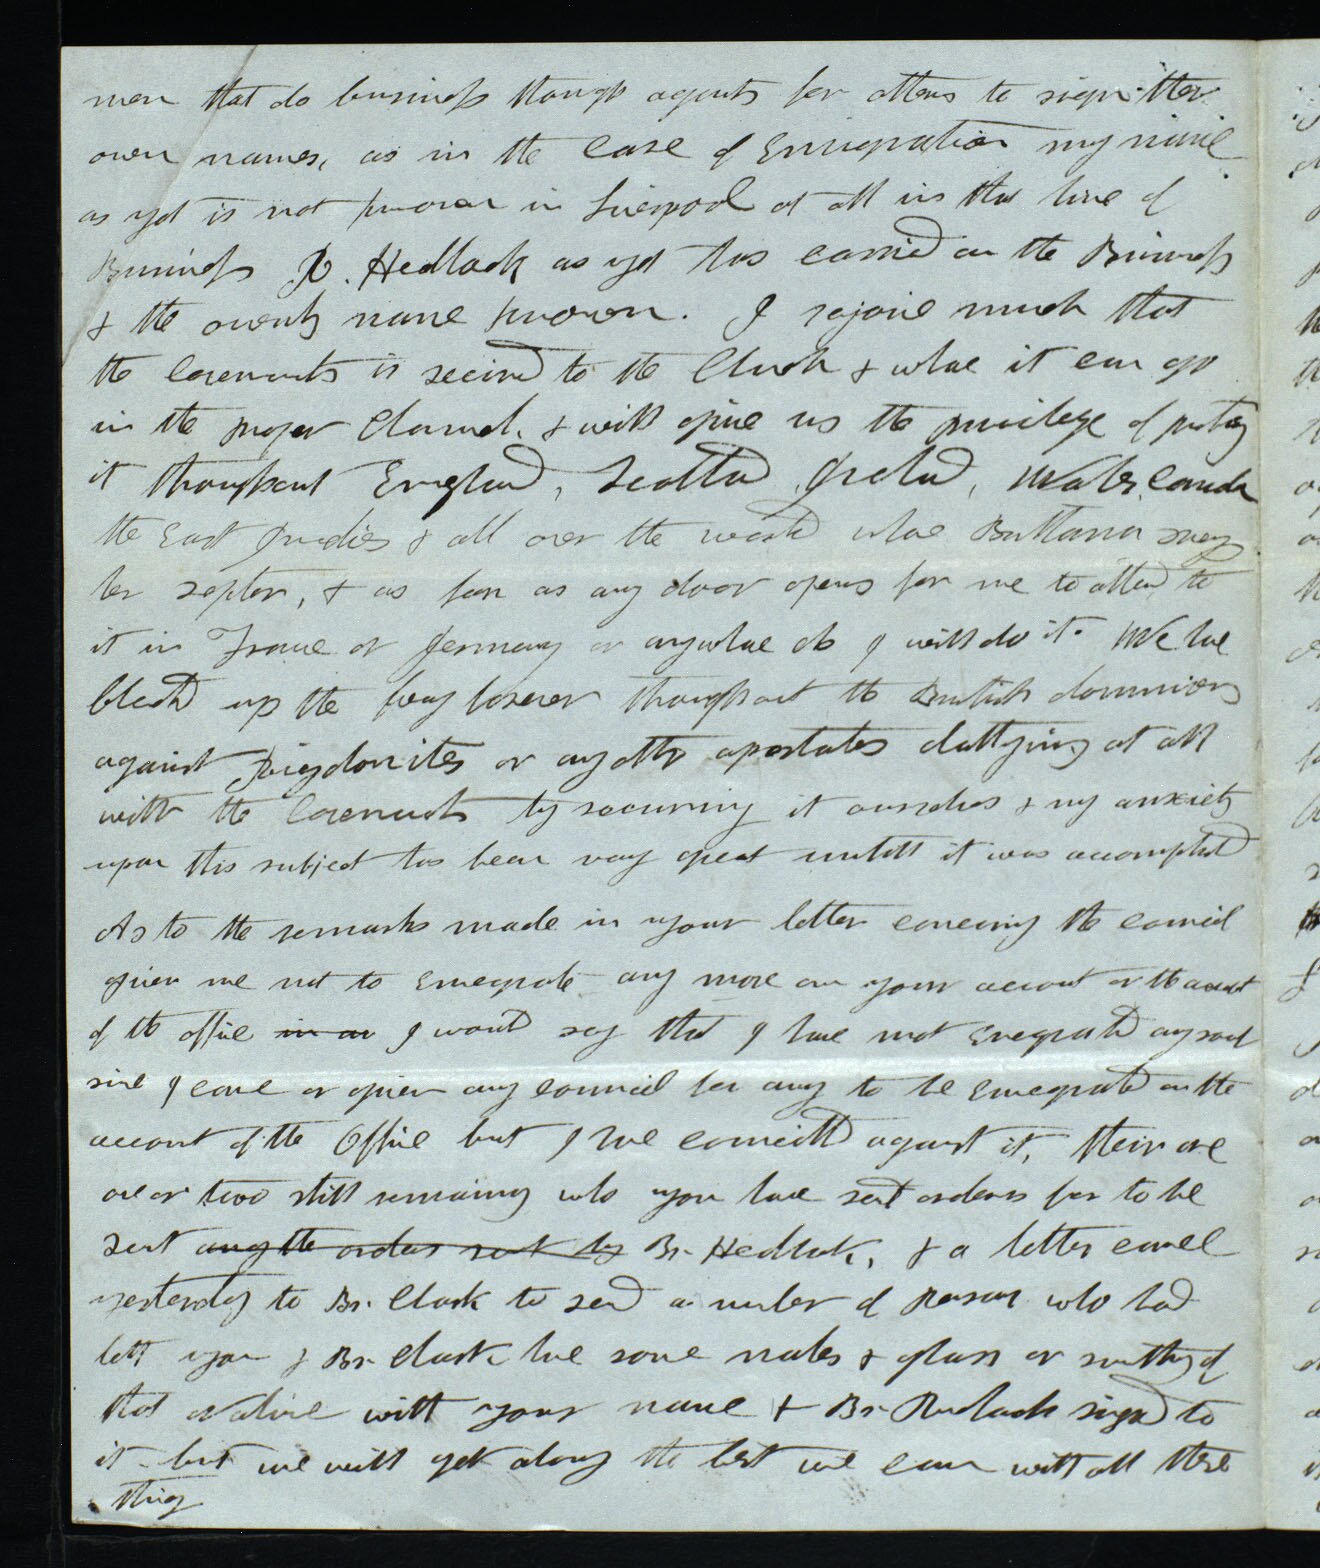 men that do business through agents for others to sign ther
own names, as in the case of Emigration my name
as yet is not known in Liverpool at all in that line of
Business R. Hedlock as yet has carried on the Business
& the ownly name known. I rejoice much that
the Covenants is secured to the Church & whare it can go
in the proper Channel, & will give us the privilege of puting
it throughout England, Scotland Ireland, Wales, Canada
the East Indies & all over the world whare Brittania sways
her septer, & as soon as any door opens for me to attend to
it in France or Jermany or anywhare els I will do it. We have
blockd up the way forever throughout the British dominions
against Rigdonites or any other apostates dallying at all
with the Covenants by securing it ourselves & my anxiety
upon this subject has been vary great untill it was accomplishd
As to the remarks made in your letter concerning the council
given me not to Emegrate any more on your account or the account
of the office in on I would say that I have not Emegrated any soul
since I came or given any council for any to be Emegrated on the
account of the Office but I have councilld against it, their are
one or two still remaining who you have sent orders for to be
sent any the orders sent by Br. Hedlock, & a letter came
yesterday to Br. Clark to send a number of Person who had
lett you & Br Clark have some notes & glass or sumthing of
that Native with your name & Br. Hedlock signd to
it but we will get along the best we can with all these
things